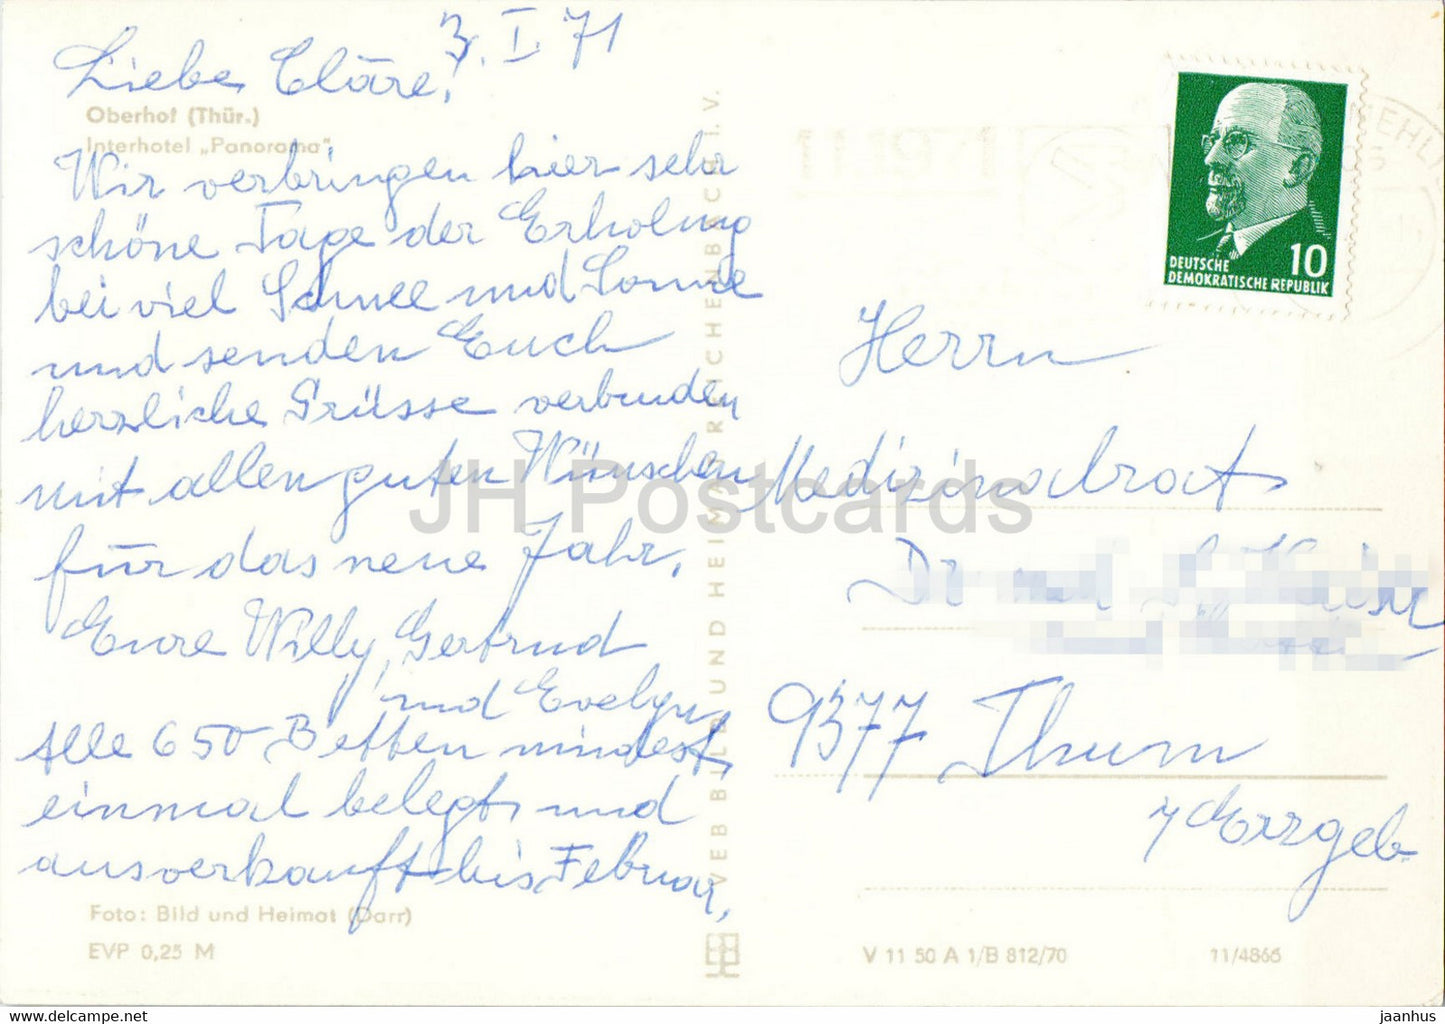 3. I. 71
Liebe Cläre!
Oberhof (Thür.)
Interhotel „Panorama"
Wir verbringen hier sehr
schöne Tage der Erholung
bei viel Schnee und Sonne
und senden Euch
herzliche Grüsse verbunden
mit allen guten Wünschen
für das neue Jahr.
Eure Willy, Gertrud
und Evelyn
Alle 650 Betten mindest.
einmal belegt und
ausverkauft bis Februar.
Foto: Bild und Heimat (Darr)
EVP 0,25 M
VEB BILD UND HEIMAT REICHENBACH I. V.
DEUTSCHE
DEMOKRATISCHE REPUBLIK
10
Herrn
Medizinalrat
Dr
9377 Thum
/Erzgeb.
V 11 50 A 1/B 812/70
11/4866
JH Postcards
HipPostcard.com/store/jhpostcards
jaanhus